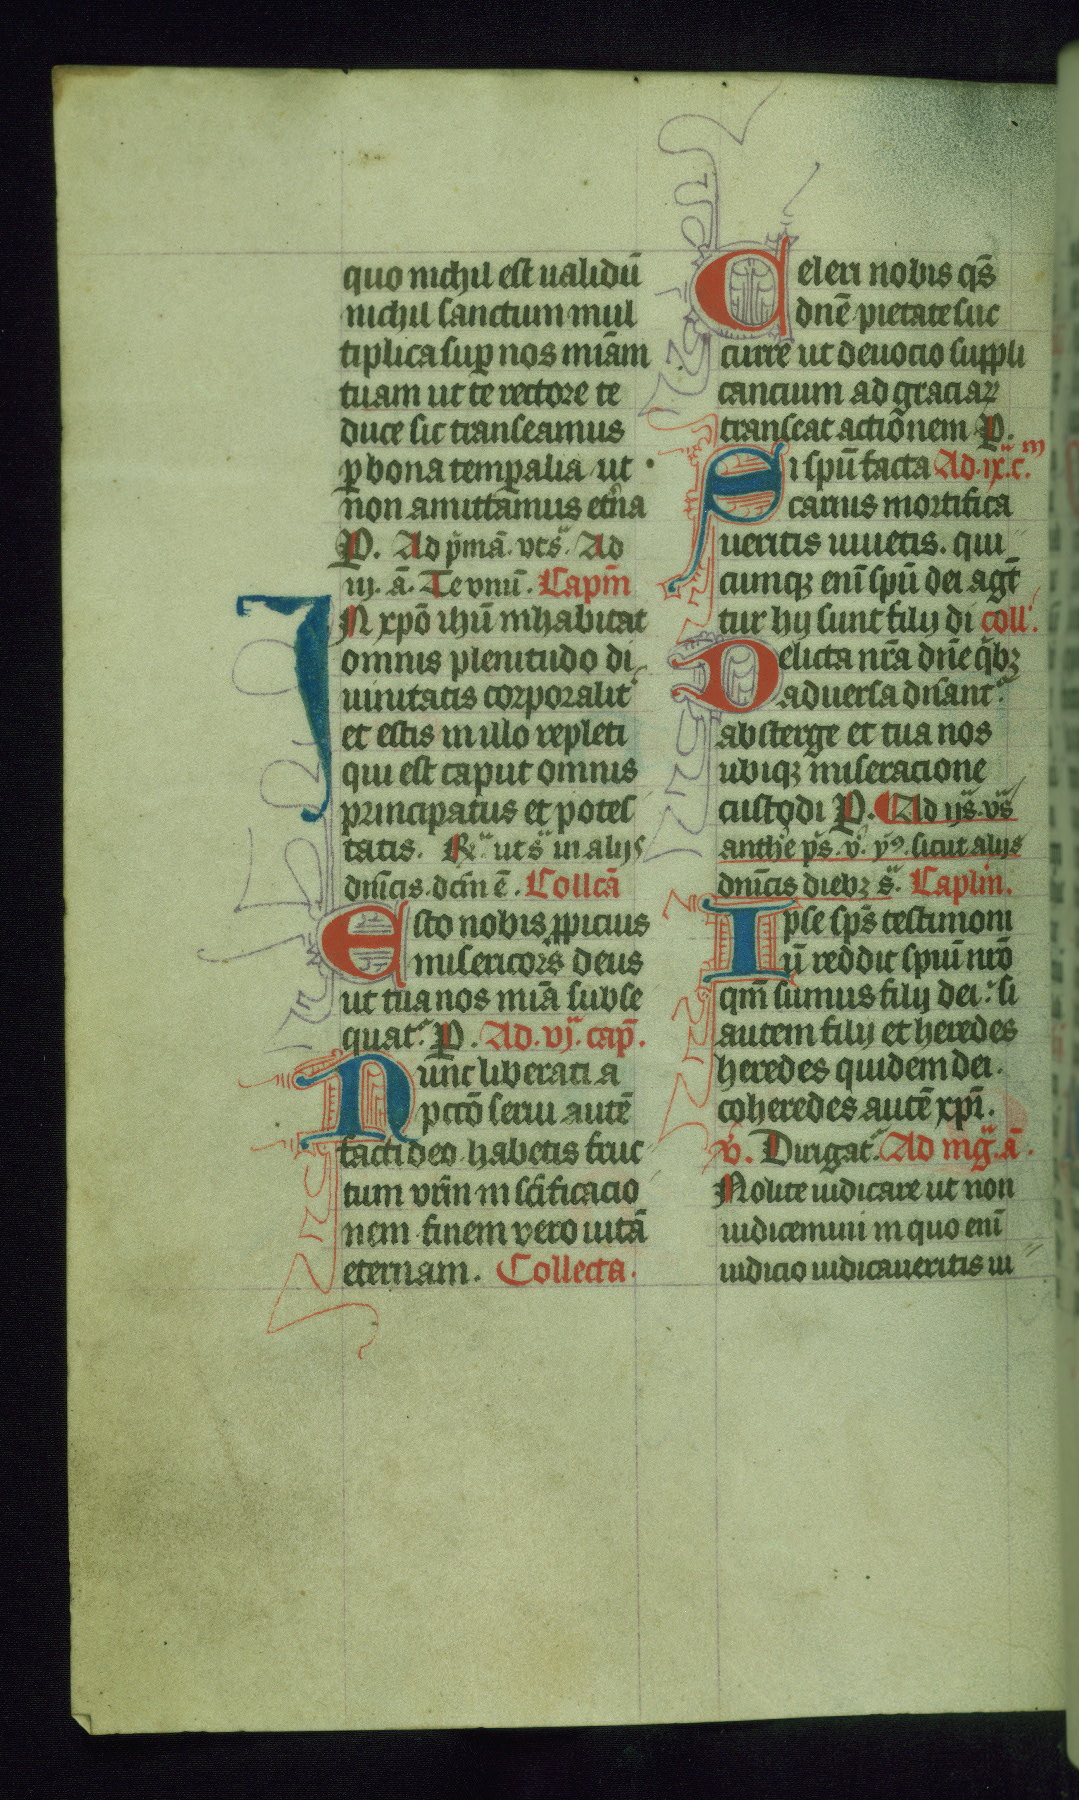 quo nichil est ualidū
nichil sanctum mul
tiplica suꝑ nos miãm
tuam ut te rectore te
duce sic transeamus
ꝑ bona temꝑalia ut
non amittamus etn̄a
P. Ad p̄mã. vts̄. Ad
iij. ã. Te vnū. Capm̄
IN xpō ihū inhabitat
omnis plenitudo di
uinitatis corporalit᷑
et estis in illo repleti
qui est caput omnis
principatus et potes
tatis. ut s̄ in alijs
dn̄icis. dcm̄ ē. Collcã
Esto nobis ꝓpicius
misericors deus
ut tua nos miã subse
quat᷑ P. Ad. vj. cap̄.
Nunc liberati a
pctō serui autē
facti deo habetis fruc
tum vrm̄ in scīficacio
nem finem vero uitã
eternam. Collecta.
Celeri nobis qs̄
dnē pietate suc
curre ut deuocio suppli
cancium ad graciaꝝ
transeat actiōnem P.
Si spū facta Ad. ix. c.m
carnis mortifica
ueritis uiuetis. qui
cumqꝫ enī spū dei agūt᷑
tur hij sunt filij di coll᷑.
Delicta nrã dnē qͥbꝫ
aduersa dn̄ant᷑
absterge et tua nos
ubiqꝫ miseracione
custodi P. Ad ijs. vs̄
anthē ps̄. v̄. yᵒ. sicut alijs
dn̄icis diebꝫ s̄. Caplm̄.
Ipse sps̄ testimoni
ū reddit spūi nrō
qm̄ sumus filij dei. si
autem filij et heredes
heredes quidem dei.
coheredes autē xpī.
v̄. Dirigat᷑. Ad mḡ. ã.
Nolite iudicare ut non
iudicemini in quo enī
iudicio iudicaueritis iu